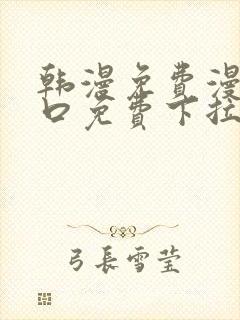 韩漫免费漫
口免费下拉
弓長雪莹